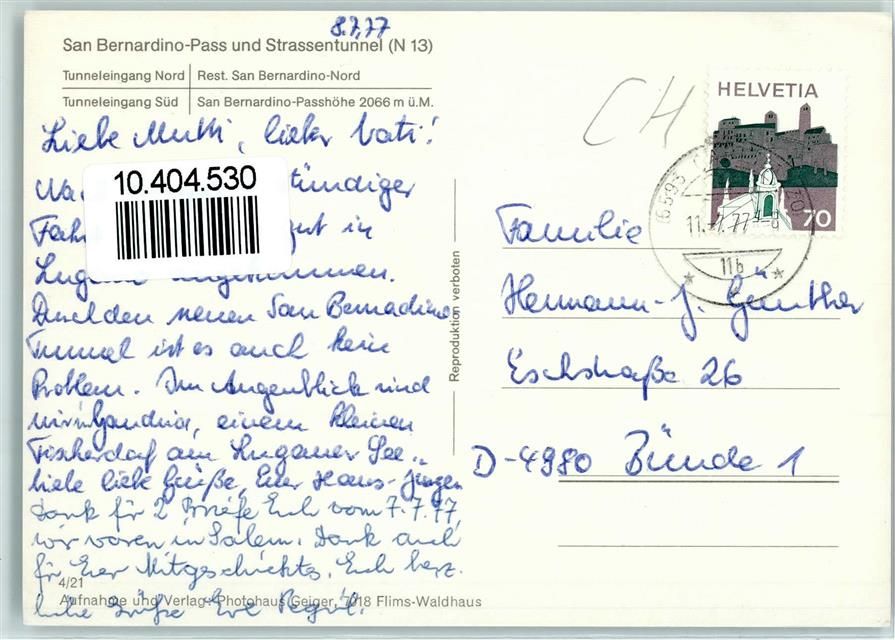 8.7.77
San Bernardino-Pass und Strassentunnel (N 13)
Tunneleingang Nord | Rest. San Bernardino-Nord
Tunneleingang Süd | San Bernardino-Passhöhe 2066 m ü.M.
Liebe Mutti, lieber Vati!
10.404.530
stündiger
gut in
Lugano angekommen.
Durch den neuen San Bernadino
Tunnel ist es auch kein
Problem. Im Augenblick sind
wir in Gandria, einem kleinen
Fischerdorf am Luganer See.
Viele liebe Grüße, Euer Hans-Jürgen
Dank für 2 Briefe Euch vom 7.7.77,
wir waren in Salem. Dank auch
für Euer Mitgeschicktes. Euch herz-
liche Grüße Eure
4/21
Aufnahme und Verlag: Photohaus Geiger, 7018 Flims-Waldhaus
Reproduktion verboten
CH
HELVETIA
70
6593
11.-7.77
11b
Familie
Hermann-J. Günther
Eschstraße 26
D-4980 Bünde 1